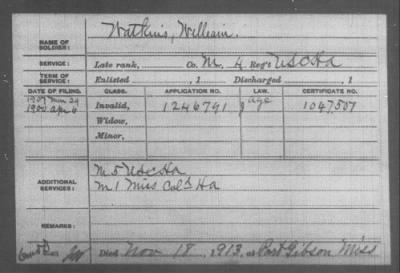 NAME OF SOLDIER: Watkins, William.
SERVICE: Late rank, Co. M, 4 Reg't USCHa
TERM OF SERVICE: Enlisted , 1 Discharged , 1
DATE OF FILING. CLASS. APPLICATION NO. LAW. CERTIFICATE NO.
1907 Mar 24
1900 Apr 6 Invalid, 1246791 age 1047507
Widow,
Minor,
ADDITIONAL SERVICES: M 5 USCHa
M 1 Miss Col'd Ha
REMARKS:
Died Nov 18, 1913, at Port Gibson Miss